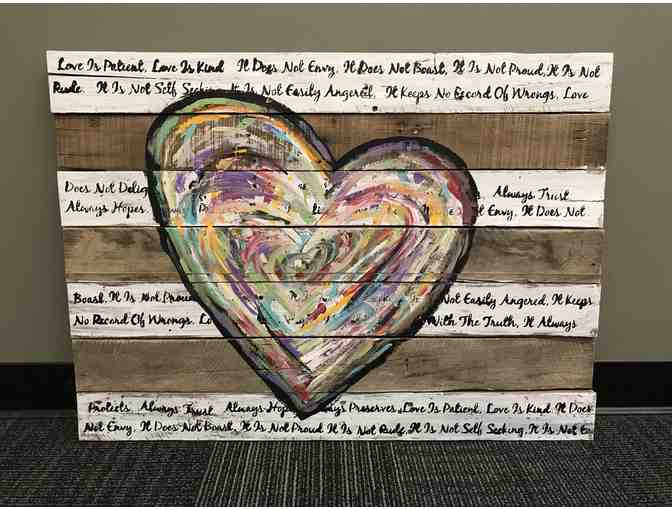 Love Is Patient, Love Is Kind It Does Not Envy, It Does Not Boast, It Is Not Proud, It Is Not
Rude It Is Not Self Seeking It Is Not Easily Angered, It Keeps No Record Of Wrongs, Love
Does Not Delig Always Trust
Always Hopes t Envy, It Does Not
Boast, It Is Not Proud Not Easily Angered, It Keeps
No Record Of Wrongs, Lo With The Truth, It Always
Protects Always Trust Always Hope ays Preserves, Love Is Patient, Love Is Kind It Does
Not Envy, It Does Not Boast, It Is Not Proud It Is Not Rude, It Is Not Self Seeking, It Is Not E